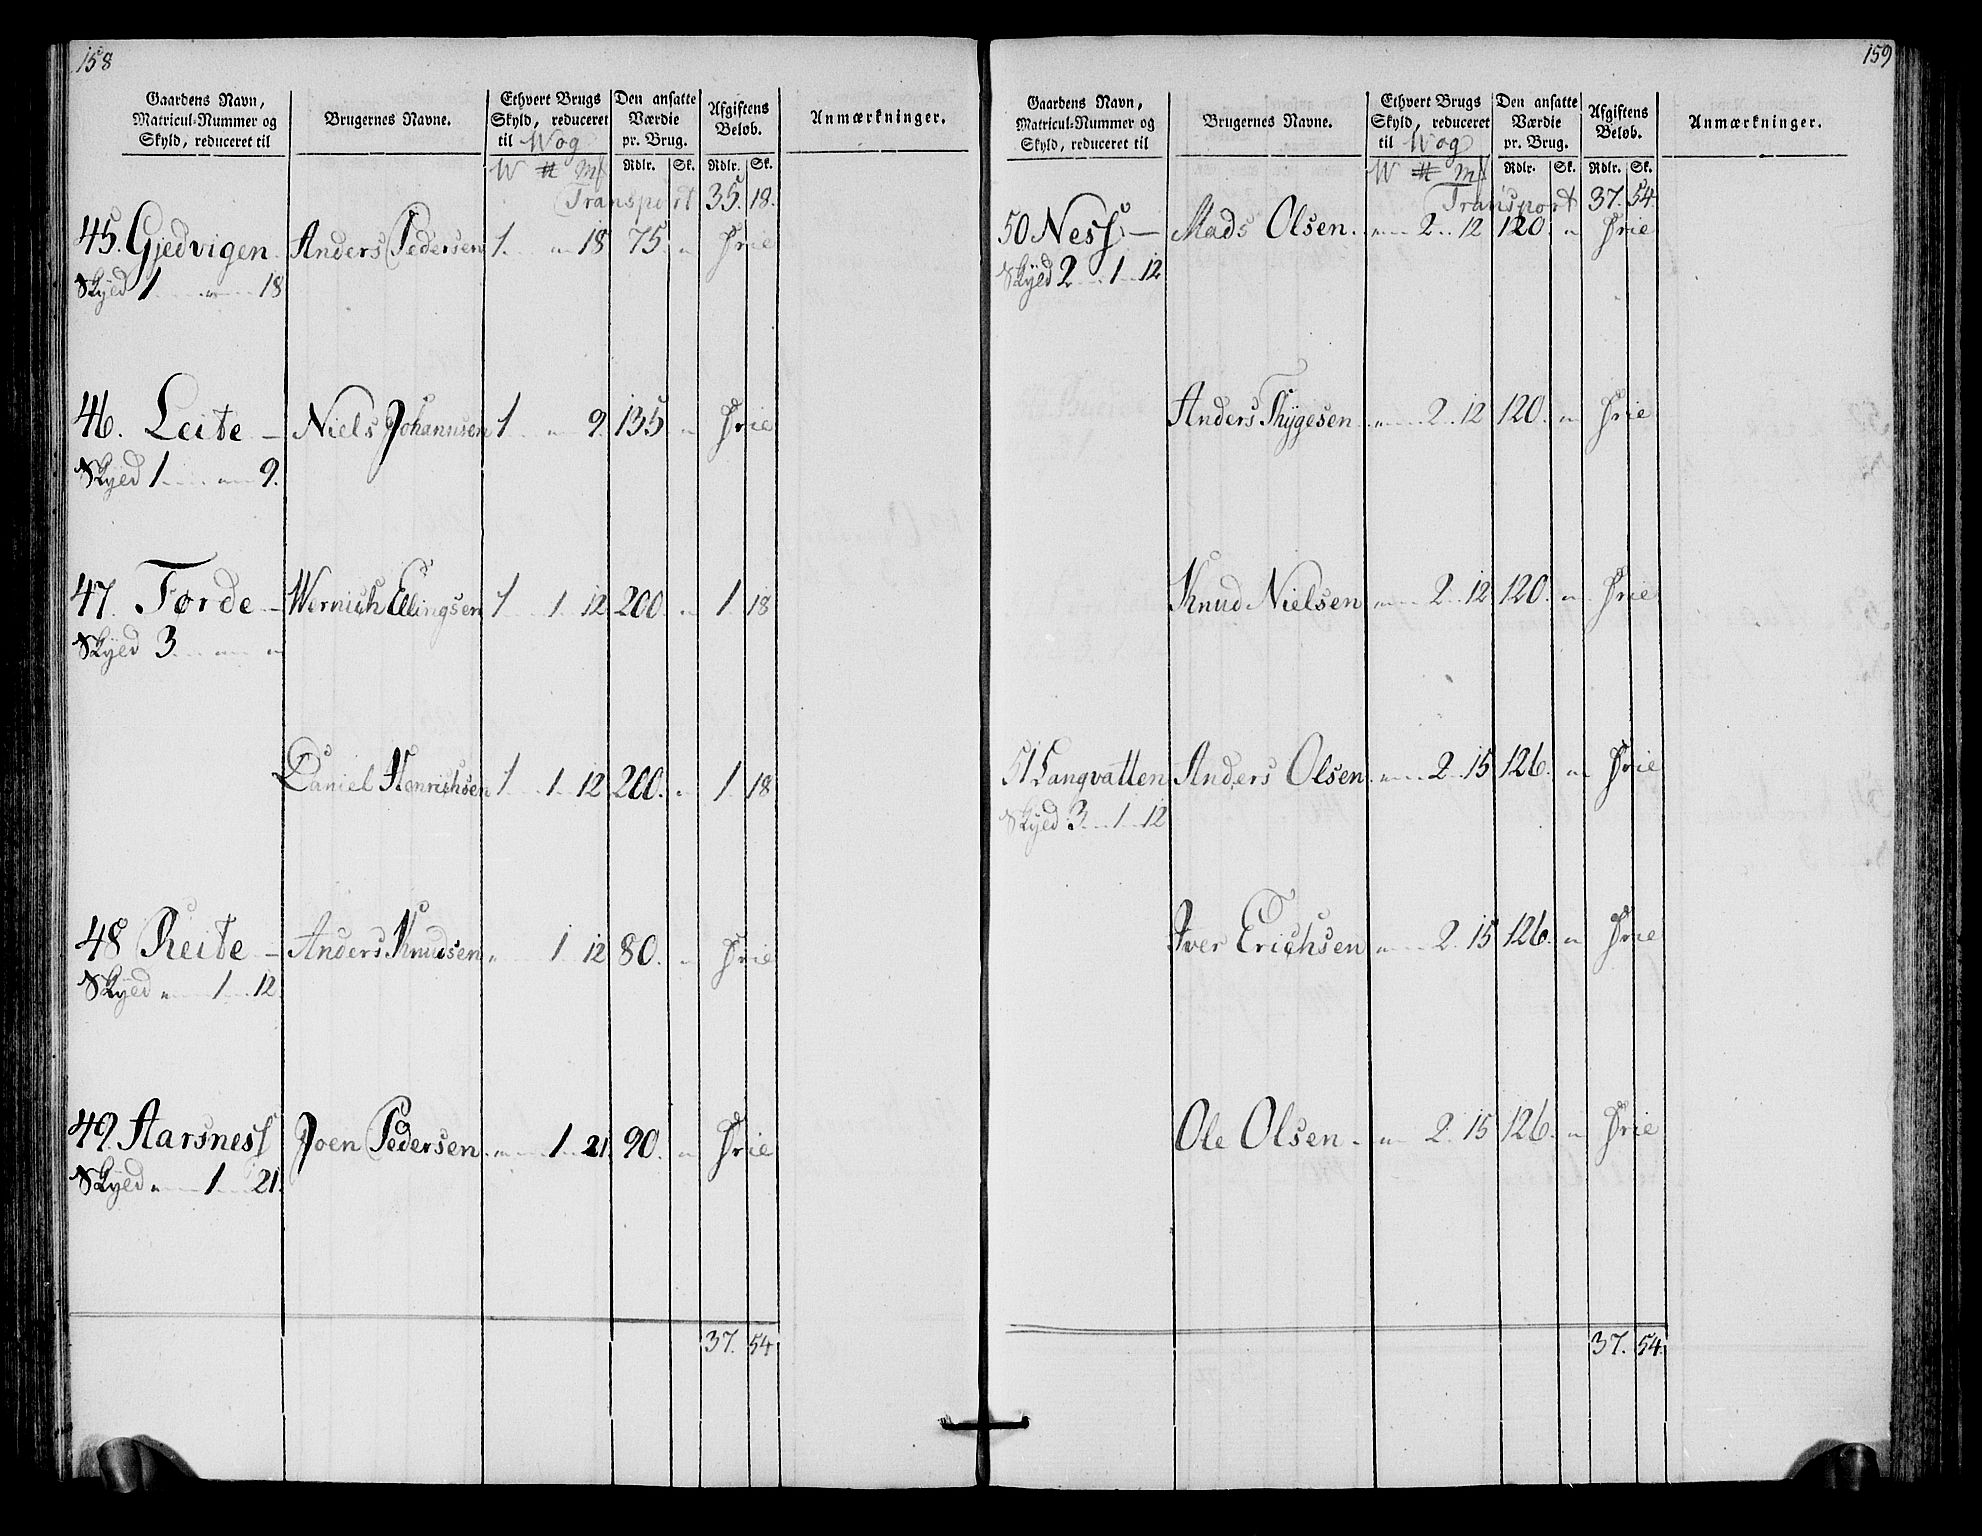 158
Gaardens Navn, Matricul-Nummer og Skyld, reduceret til
Brugernes Navne.
Ethvert Brugs Skyld, reduceret til Wog
Den ansatte Værdie pr. Brug.
Afgiftens Beløb.
Anmærkninger.
W # Mk Rdlr. Sk. Rdlr. Sk.
Transport 35. 18.
45. Gjedvigen Anders Pedersen 1. „ 18 75 „ Frie
Skyld 1 „ 18
46. Leite — Niels Johannsen 1 „ 9. 135 „ Frie
Skyld 1 „ 9.
47. Førde — Wernich Ellingsen 1 1 12 200 „ 1 18
Skyld 3 „ „
Daniel Henrichsen 1 1 12 200. „ 1 18
48 Reite — Anders Knudsen „ 1 12 80. „ Frie
Skyld „ 1 12
49. Aarsness Joen Pedersen „ 1 21 90. „ Frie
Skyld „ 1 21.
37. 54
159
Gaardens Navn, Matricul-Nummer og Skyld, reduceret til
Brugernes Navne.
Ethvert Brugs Skyld, reduceret til Wog
Den ansatte Værdie pr. Brug.
Afgiftens Beløb.
Anmærkninger.
W # Mk Rdlr. Sk. Rdlr. Sk.
Transport 37. 54
50 Ness — Mads Olsen. „ 2 12 120. „ Frie
Skyld 2 1 12
Anders Thygesen „ 2 12 120. „ Frie
Knud Nielsen „ 2 12 120. „ Frie
51 Langvatten Anders Olsen „ 2 15 126. „ Frie
Skyld 3 1 12
Iver Erichsen „ 2 15 126. „ Frie
Ole Olsen „ 2 15 126. „ Frie
37. 54.